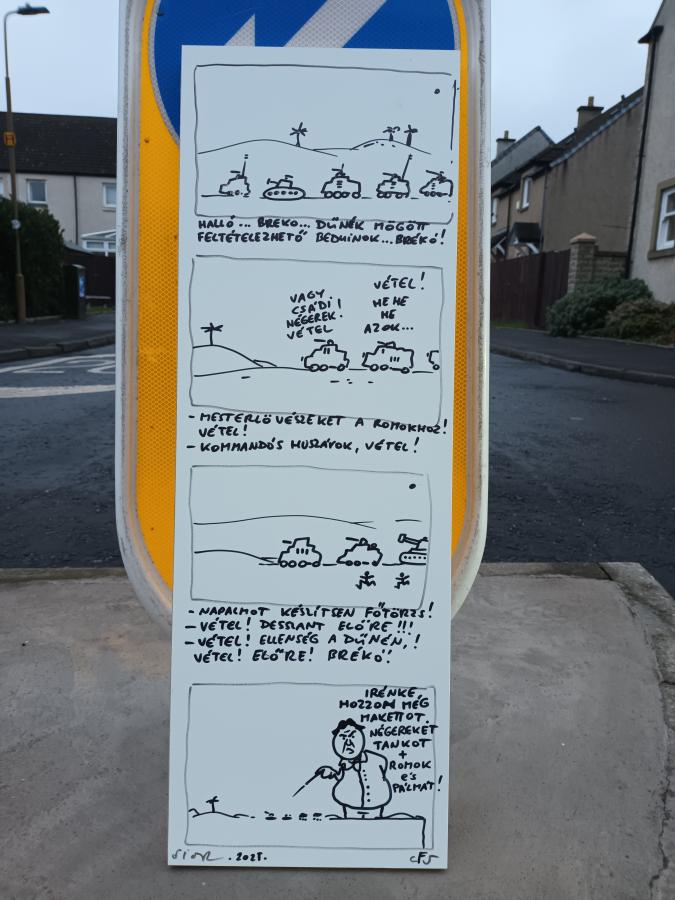 HALLÓ... BREKO... DŰNÉK MÖGÖTT
FELTÉTELEZHETŐ BEDUINOK...BRÉKÓ!
VAGY
CSÁDI!
NÉGEREK!
VÉTEL
VÉTEL!
HE HE
HE
AZOK...
- MESTERLÖVÉSZEKET A ROMOKHOZ!
VÉTEL!
- KOMMANDÓS HUSZÁROK, VÉTEL!
- NAPALMOT KÉSZÍTSEN FŐTÖRZS!
- VÉTEL! DESSANT ELŐRE!!!
- VÉTEL! ELLENSÉG A DŰNÉN,!
VÉTEL! ELŐRE! BRÉKÓ!
IRÉNKE,
HOZZON MÉG
MAKETTOT.
NÉGEREKET
TANKOT
+
ROMOK
és
PÁLMÁT!
. 2025.